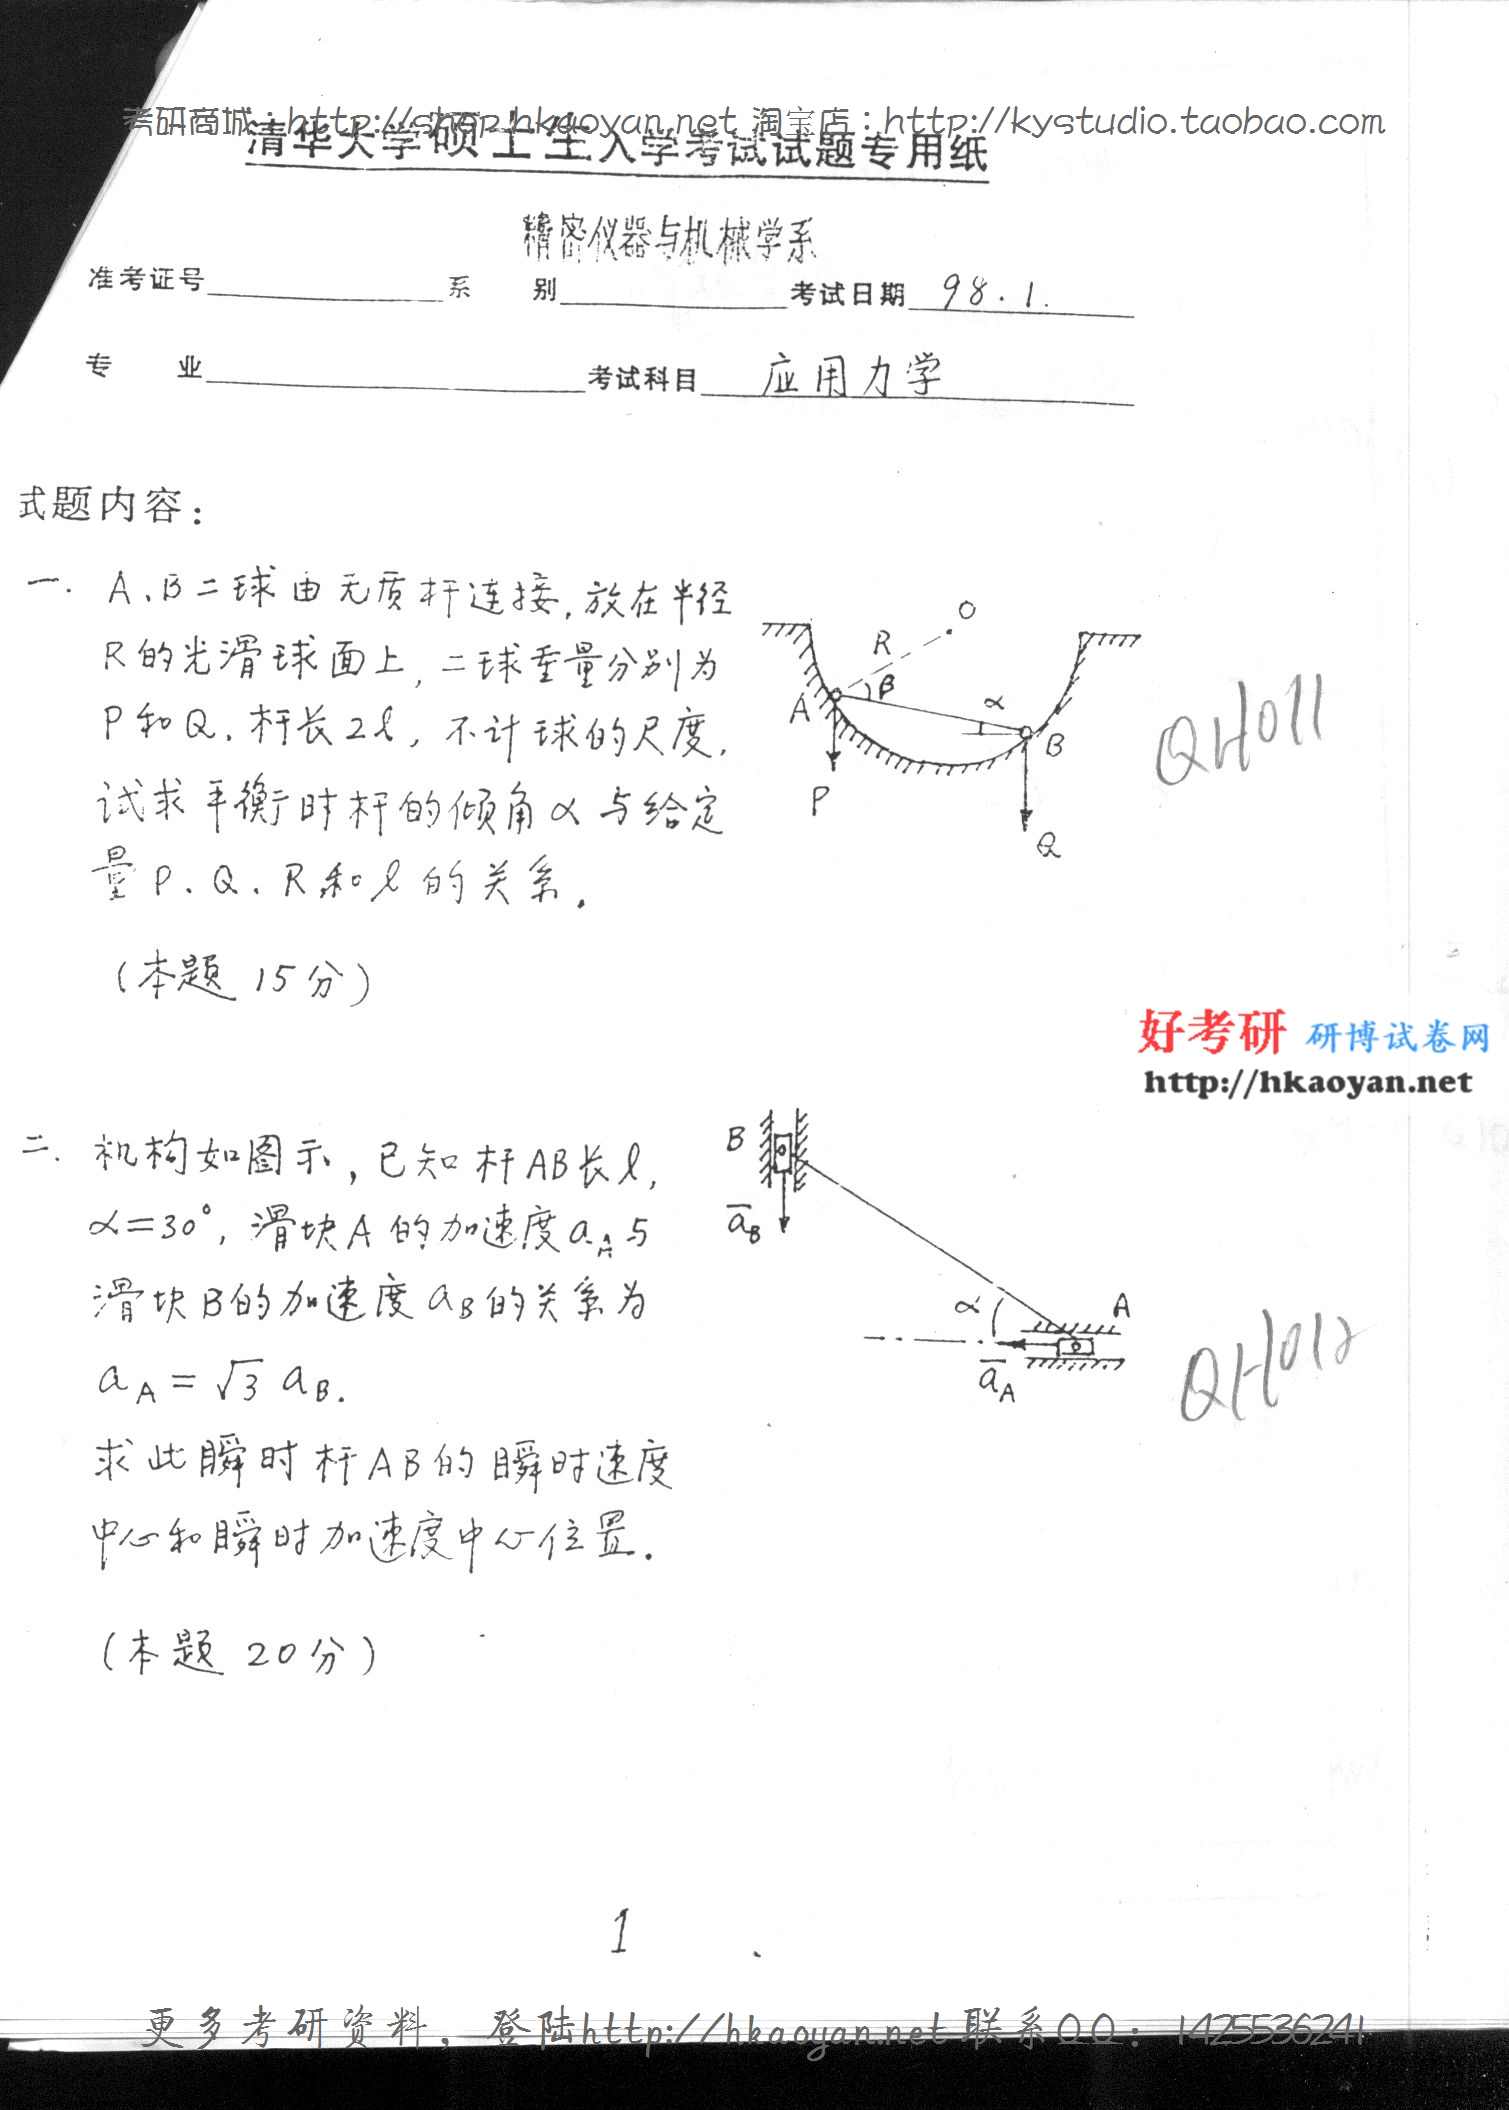 考研商城：http://shop.hkaoyan.net 淘宝店：http://kystudio.taobao.com
清华大学硕士生入学考试试题专用纸
精密仪器与机械学系
准考证号 系 别 考试日期 98.1.
专 业 考试科目 应用力学
式题内容：
一. A、B二球由无质杆连接，放在半径
R的光滑球面上，二球重量分别为
P和Q，杆长2l，不计球的尺度，
试求平衡时杆的倾角α与给定
量P、Q、R和l的关系。
（本题15分）
O
R
β
A
α
B
P
Q
QH011
好考研 研博试卷网
http://hkaoyan.net
二. 机构如图示，已知杆AB长l，
α=30°，滑块A的加速度aA与
滑块B的加速度aB的关系为
aA=√3 aB.
求此瞬时杆AB的瞬时速度
中心和瞬时加速度中心位置.
（本题20分）
B
aB
α
A
aA
QH012
1
更多考研资料，登陆http://hkaoyan.net 联系QQ：1425536241